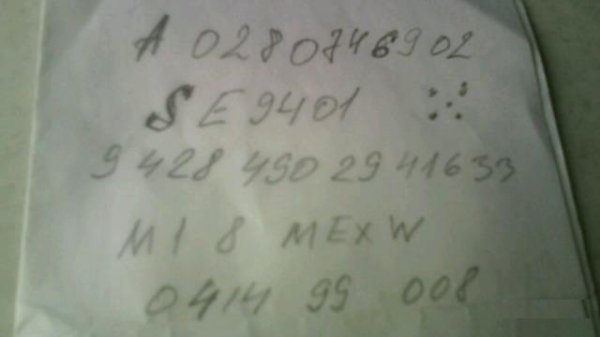 A 0280746902
S E 9401
9 428 490 29 41633
M 1 8 MEXW
0414 99 008